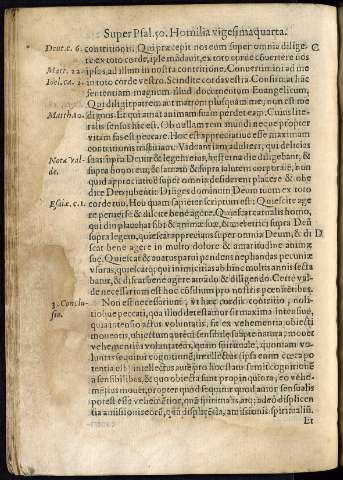 Super Psal. 50. Homilia vigesimaquarta.
Deut. c. 6. contritiõis. Qui præcepit nos eum super omnia dilige- C
re ex toto corde, ipse mãdavit, ex toto corde
Matt. 22. ipsos, ad illum in nostra contritione. Convertimini ad me
Ioel. ca. 2. in toto corde vestro. Scindite corda vestra. Confirmat hãc
sententiam magnum illud documentum Euangelicum,
Qui diligit patrem aut matrem plusquam me, non est me
Matth. 10. dignus. Et qui amat animam suam perdet eam. Cuius lite-
ralis sensus hic est. Ob nullam rem mundi neque propter
vitam fas est peccare. Hoc est appretiativo esse maximam
contritionis tristitiam. Vadant iam adulteri, qui delicias
Nota val- suas supra Deum & legem eius, hesterna die diligebant, &
de. supra honorem, & famam & supra salutem corporalẽ, nun
quid appretiative super omnia desiderent placere & obe
dire Deo jubenti: Diliges dominum Deum tuum ex toto
Esaiæ. c. 1. corde tuo. Heu quam sapienter scriptum est: Quiescite age
re perverse & discite benè agere. Quiescat carnalis homo,
qui din placebat sibi & animæ suæ, & juventuti supra Deũ
supra legem, quiescat appretians super omnia Deum, & di D
scat bene agere in multo dolore & amaritudine animæ
suæ. Quiescat & avarus parvi pendens nephandas pecunias
usuras, quiescatq; qui inimicitias ab hinc multis annis secta
batur, & discat bene agere amãdo & diligendo. Certe val-
de necessarium est hoc cõsilium pro nostris pœnitẽtibus.
3. Conclu- Non est necessariũ, ut hæc cordis contritio,
sio. tioque peccati, quà illud detestamur sit maxima intensivè,
quia intensio actus voluntatis, fit ex vehementia obiecti
moventis, obiectum autẽ sensibile sapte natura, movet
vehementius voluntatẽ, quàm spirituale, quoniam vo-
luntas sequitur cognitionẽ, intellectus ipsa enim cœca po
tentia est: intellectus autẽ pro hoc statu semit cognitionẽ
à sensibilibus, & quo obiecta sunt propinquiora, eo vehe-
mẽtius movet, propter quod sequitur quod amor sensualis
potest esse vehemẽtior, quam spiritualis
tia amisionis eorũ, quã displicẽtia, amisionis spiritualiũ.
Et